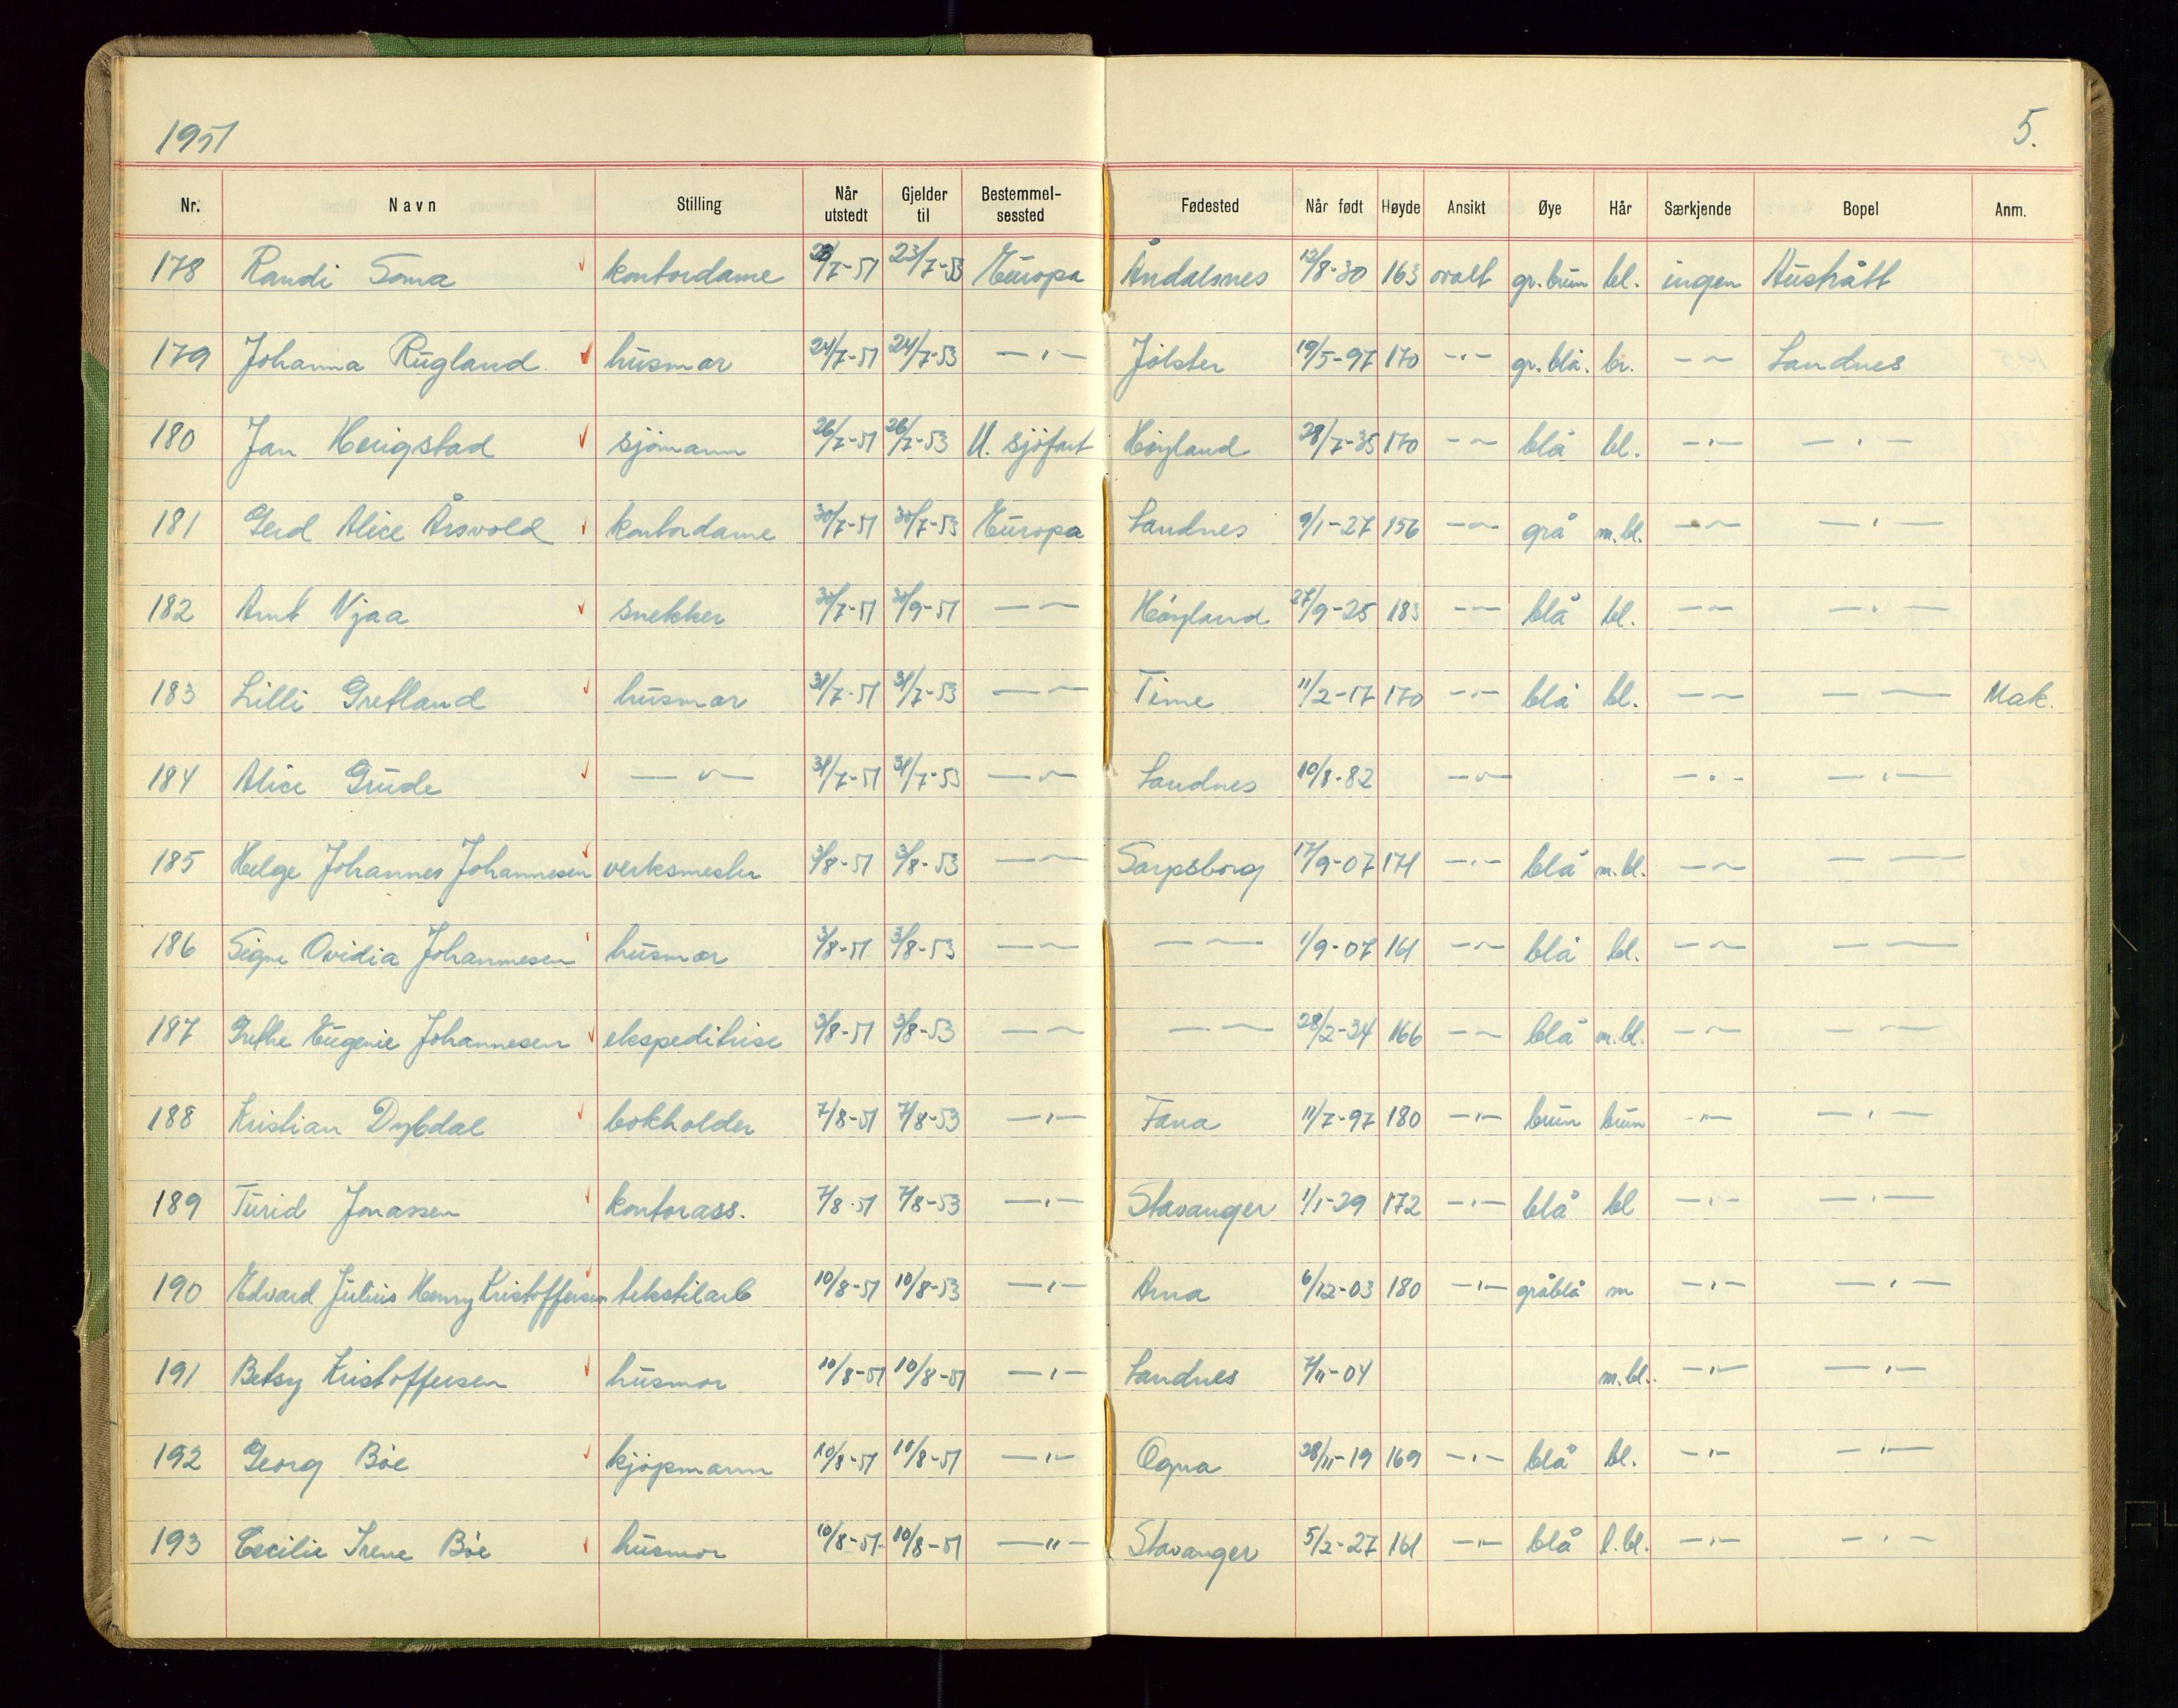 1951
5.
Nr. Navn Stilling Når utstedt Gjelder til Bestemmelsessted Fødested Når født Høyde Ansikt Øye Hår Særkjende Bopel Anm.
178 Randi Soma kontordame 23/7-51 23/7-53 Europa Åndalsnes 12/8-30 163 ovalt gr. brun bl. ingen Austrått
179 Johanna Rugland husmor 24/7-51 24/7-53 —"— Jølster 19/5-97 170 —"— gr. blå. br. —"— Sandnes
180 Jan Hengstad sjömann 26/7-51 26/7-53 U. sjöfart Höyland 28/7-35 170 —"— blå bl. —"— —"—
181 Gerd Alice Årsvold kontordame 30/7-51 30/7-53 Europa Sandnes 9/1-27 156 —"— grå m. bl. —"— —"—
182 Arnt Njaa snekker 30/7-51 30/9-51 —"— Höyland 27/9-25 183 —"— blå bl. —"— —"—
183 Lilli Gretland husmor 31/7-51 31/7-53 —"— Time 11/2-17 170 —"— blå bl. —"— —"— Mak.
184 Alice Grude —"— 31/7-51 31/7-53 —"— Sandnes 10/8-82 —"— —"— —"—
185 Helge Johannes Johannesen verksmester 3/8-51 3/8-53 —"— Sarpsborg 17/9-07 171 —"— blå m. bl. —"— —"—
186 Signe Ovidia Johannesen husmor 3/8-51 3/8-53 —"— —"— 1/9-07 161 —"— blå bl. —"— —"—
187 Grethe Eugenie Johannesen ekspeditrise 3/8-51 3/8-53 —"— —"— 28/2-34 166 —"— blå m. bl. —"— —"—
188 Kristian Dybdal bokholder 7/8-51 7/8-53 —"— Fana 11/7-97 180 —"— brun brun —"— —"—
189 Turid Jonassen kontorass. 7/8-51 7/8-53 —"— Stavanger 1/1-29 172 —"— blå bl —"— —"—
190 Edvard Julius Henry Kristoffersen tekstilarb 10/8-51 10/8-53 —"— Arna 6/12-03 180 —"— gråblå m —"— —"—
191 Betsy Kristoffersen husmor 10/8-51 10/8-51 —"— Sandnes 7/11-04 m. bl. —"— —"—
192 Georg Böe kjöpmann 10/8-51 10/8-51 —"— Ogna 28/11-19 169 —"— blå bl. —"— —"—
193 Cecilie Irene Böe husmor 10/8-51 10/8-51 —"— Stavanger 5/2-27 161 —"— blå l. bl. —"— —"—